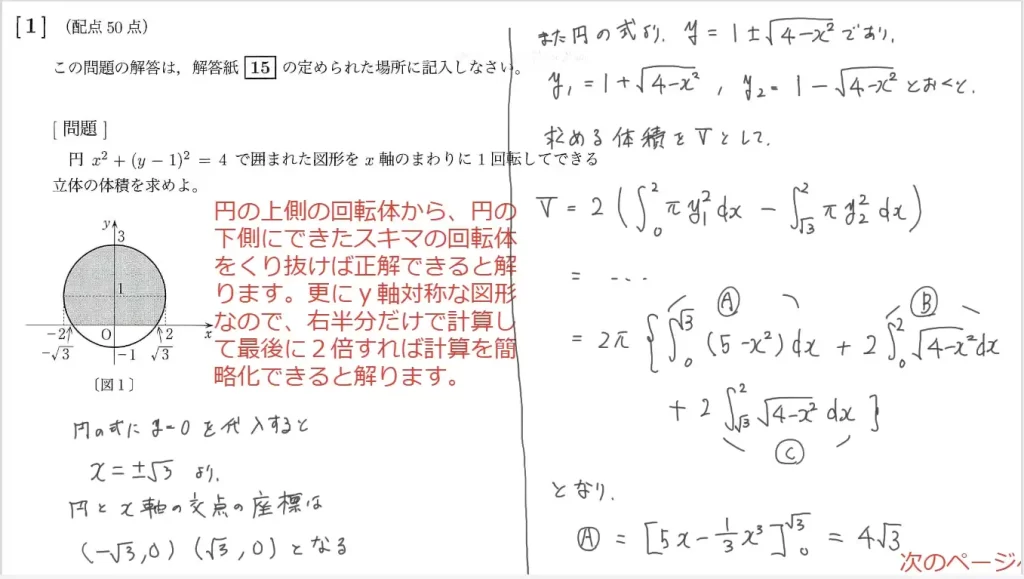 [1] (配点 50 点)
この問題の解答は,解答紙 15 の定められた場所に記入しなさい。
[問題]
円 x² + (y − 1)² = 4 で囲まれた図形を x 軸のまわりに 1 回転してできる
立体の体積を求めよ。
y
3
1
−2
O
2
x
−√3
−1
√3
〔図1〕
円の上側の回転体から、円の
下側にできたスキマの回転体
をくり抜けば正解できると解
ります。更にy軸対称な図形
なので、右半分だけで計算し
て最後に2倍すれば計算を簡
略化できると解ります。
円の式に y=0 を代入すると
x = ±√3 より,
円と x 軸の交点の座標は
(−√3, 0) (√3, 0) となる
また円の式より, y = 1 ± √(4−x²) であり,
y₁ = 1 + √(4−x²) , y₂ = 1 − √(4−x²) とおくと,
求める体積を V として,
V = 2 ( ∫₀² π y₁² dx − ∫_√3² π y₂² dx )
= ...
= 2π { ∫₀^√3 (5 − x²) dx + 2 ∫₀² √(4−x²) dx
Ⓐ Ⓑ
+ 2 ∫_√3² √(4−x²) dx }
Ⓒ
となり,
Ⓐ = [5x − 1/3 x³]₀^√3 = 4√3
次のページへ